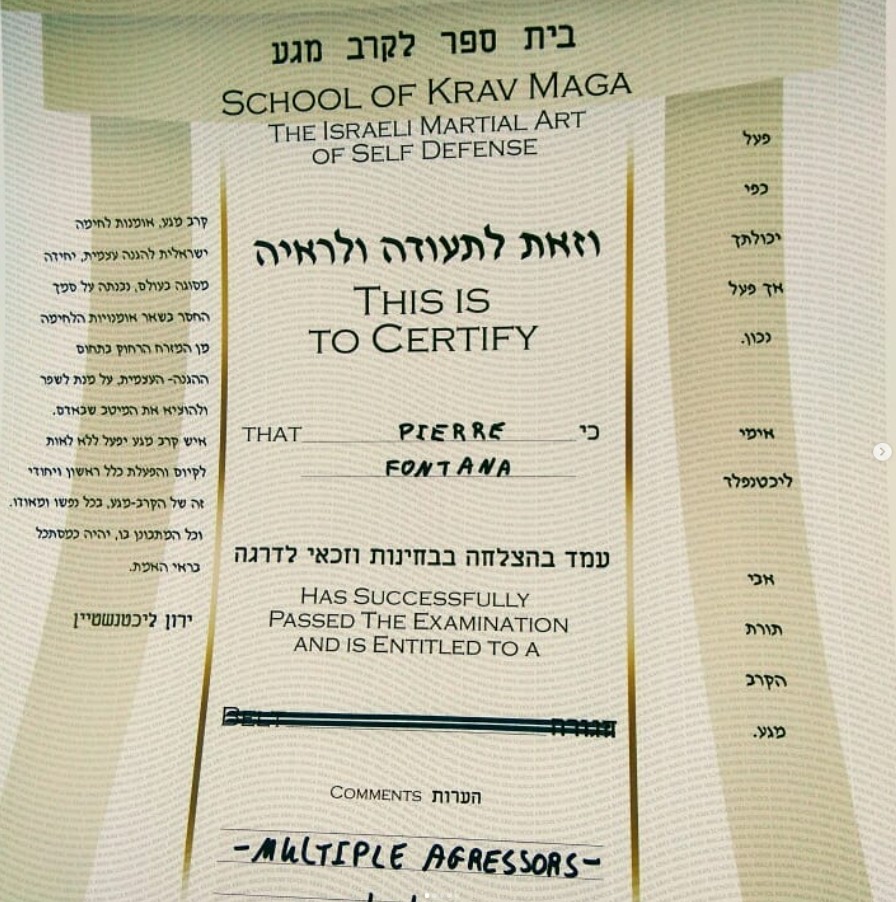 בית ספר לקרב מגע
SCHOOL OF KRAV MAGA
THE ISRAELI MARTIAL ART
OF SELF DEFENSE
וזאת לתעודה ולראיה
THIS IS
TO CERTIFY
THAT PIERRE כי
FONTANA
עמד בהצלחה בבחינות וזכאי לדרגה
HAS SUCCESSFULLY
PASSED THE EXAMINATION
AND IS ENTITLED TO A
BELT חגורה
COMMENTS הערות
-MULTIPLE AGRESSORS-
פעל
כפי
יכולתך
אך פעל
נכון.
אימי
ליכטנפלד
אבי
תורת
הקרב
מגע.
קרב מגע, אומנות לחימה
ישראלית להגנה עצמית, יחידה
מסוגה בעולם, נבנתה על סמך
החסר בשאר אומנויות הלחימה
מן המזרח הרחוק בתחום
ההגנה- העצמית, על מנת לשפר
ולהוציא את המיטב שבאדם.
איש קרב מגע יפעל ללא לאות
לקיום והפעלת כלל ראשון ויחודי
זה של הקרב-מגע, בכל נפשו ומאודו.
וכל המתבונן בו, יהיה כמסתכל
בראי האמת.
ירון ליכטנשטיין